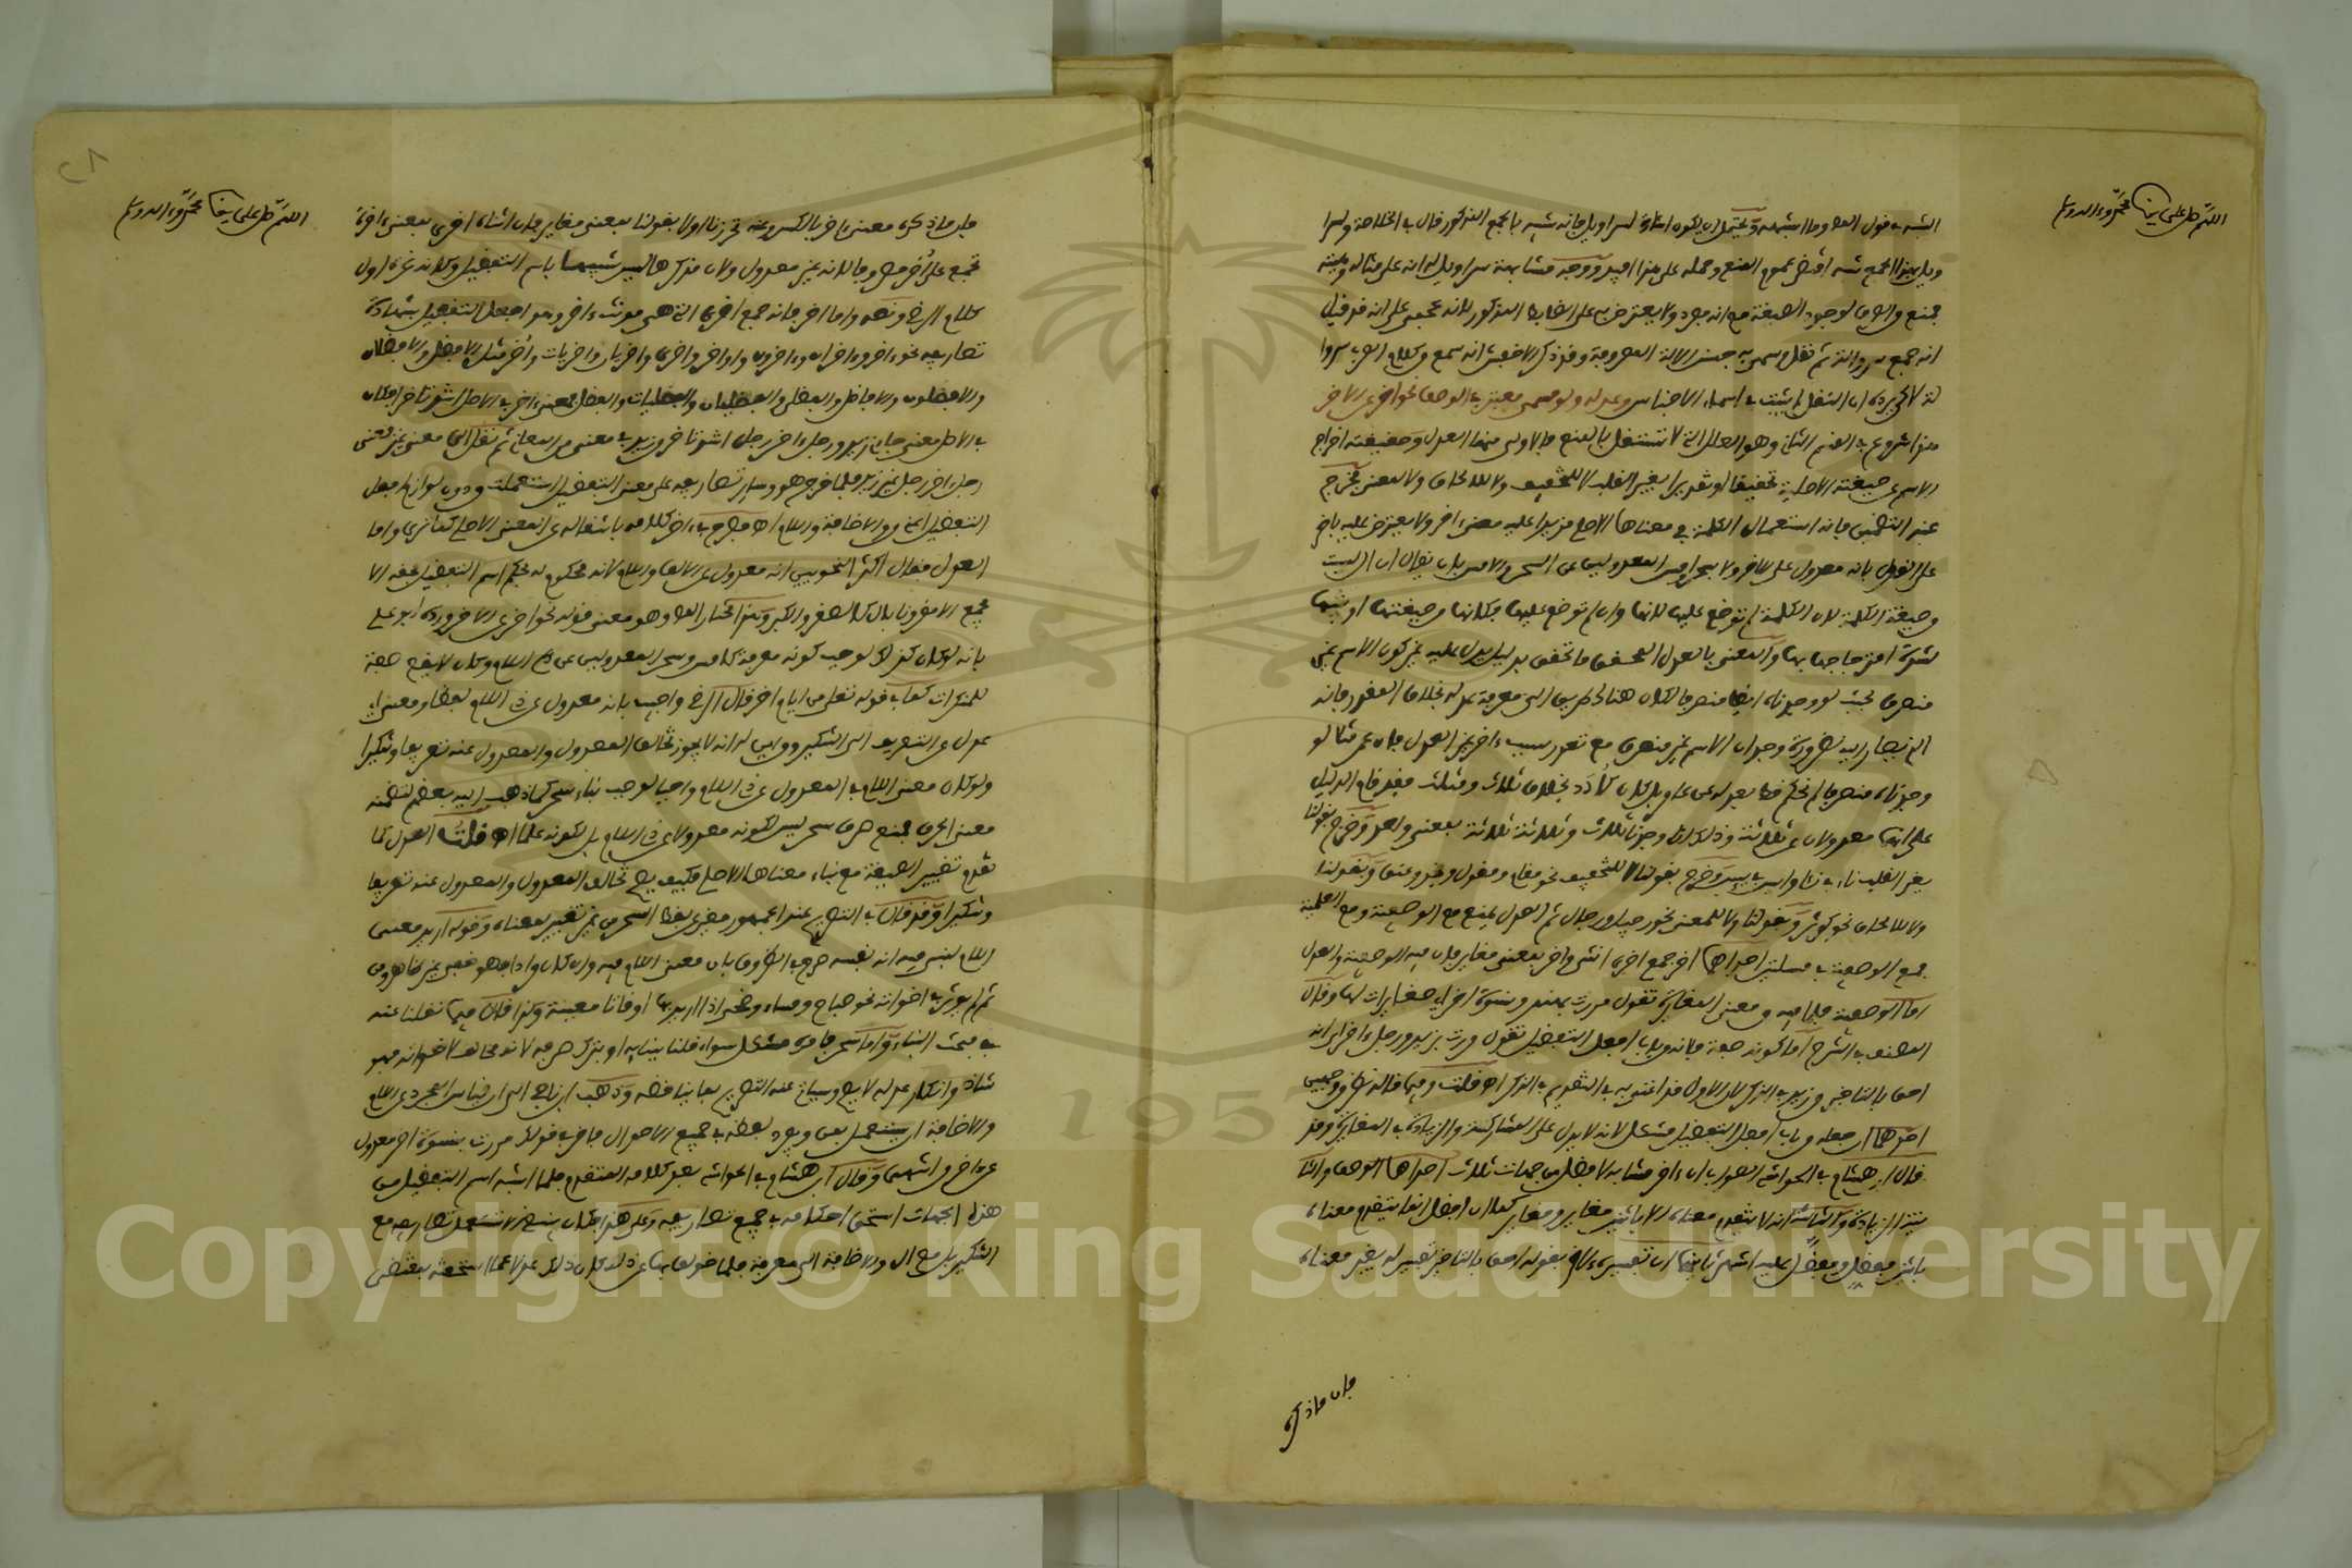 اللهم صل على سيدنا محمد وآله وسلم
الشبه قول المص وما اشبهه ويحتمل ان يكون اشارة لسراويل فانه شبه بالجمع المذكور قال في الخلاصة ولسرا
ويل بهذا الجمع شبه اقتضى عموم المنع وحمله على هذا افيد ووجه مشابهة سراويل له انه على مثاله
لوجود الصيغة مع انه مفرد ولا يعترض به على الضابط المذكور لانه عجمي على انه قد قيل
انه جمع سروالة ثم نقل وسمي به جنس الالة المعروفة وقد ذكر الاخفش انه سمع من كلام العرب سروا
لة لاكن يرده ان النقل لم يثبت في اسماء الاجناس وعدله ولو صمى معين في الوصف نحو اخرى الاخر
هذا شروع في القسم الثاني وهو العلل التي لا تستقل بالمنع فالاولى منها العدل وحقيقته اخراج
الاسم عن صيغته الاصلية تحقيقا او تقديرا بغير القلب لا للتخفيف ولا للالحاق ولا لمعنى فخرج
عنه التضمين فانه استعمال الكلمة في معناها الاصلي مزيدا عليه معنى اخر ولا يعترض عليه باخر
على القول بانه معدول على الاخر ولا بسحر وامس المعدولين عن السحر والامس بان يقال ان ال ليست
من صيغة الكلمة لان الكلمة لم توضع عليها لانها وان لم توضع عليها فكانها من صيغتها او بنيتها
لشدة امتزاجها بها والمعنى بالعدل المحقق ما تحقق بدليل يدل عليه غير كون الاسم غير
منصرف بحيث لو وجدناه ايضا منصرفا لكان هنالك طريق الى معرفة عدله بخلاف المقدر فانه
الذي يصار اليه لضرورة وجدان الاسم غير منصرف مع تعذر سبب اخر غير العدل فان عمر مثلا لو
وجدناه منصرفا لم نحكم قط بعدله عن عامر بل كان كأدد بخلاف ثلاث ومثلث فقد قام الدليل
على انهما معدولان عن ثلاثة ثلاثة وذلك انا وجدنا ثلاث وثلاثة ثلاثة بمعنى واحد وخرج بقولنا
بغير القلب ناء في نأى وايس في يئس وخرج بقولنا لا للتخفيف نحو مقام ومقول وفخذ وعنق وبقولنا
ولا للالحاق نحو كوثر وبقولنا ولا لمعنى نحو رجيل ورجال ثم العدل يمنع مع الوصفية ومع العلمية
فمع الوصفية في مسلتين احداهما اخر جمع اخرى انثى اخر بمعنى مغاير فان فيه الوصفية والعدل
اما الوصفية فلما فيه من معنى المغايرة تقول مررت بهند ونسوة اخر اي مغايرات لها وقال
المصنف في الشرح اما كونه صفة فانه من باب افعل التفضيل تقول مررت بزيد ورجل اخر اي انه
احق بالتاخير من زيد في الذكر لان الاول قد اعتني به في التقديم في الذكر اهـ قلت وفيما قاله نظر من وجهين
احدهما ان جعله من باب افعل التفضيل مشكل لانه لا يدل على المشاركة والزيادة في المغايرة وقد
قال ابن هشام في الحواشي الصواب ان اخر مشابه لافضل من جهات ثلاث احداها الوصف والثا
نية الزيادة والثالثة انه لا يتقوم معناه الا باثنين مغاير ومغاير كما ان افضل انما يتقوم معناه
باثنين مفضل ومفضل عليه اهـ ثانيهما ان تفسيره الاخر بقوله احق بالتاخير تفسير له بغير معناه
فان ما ذكره
اللهم صل على سيدنا محمد وآله وسلم
فان ما ذكره معنى اخر بالكسر وعنه تحرزنا اولا بقولنا بمعنى مغاير فان انثاه اخرى بمعنى اخرة
تجمع على أخر مصروفا لانه غير معدول ولان مذكرها ليس شبيها باسم التفضيل وكانه غره اول
كلام الرضي ونصه واما اخر فانه جمع اخرى التي هي مونث اخر وهو افعل التفضيل بشهادة
تصاريفه نحو اخر واخران واخرون واواخر واخرى واخريان واخريات وأخر مثل الافضل والافضلان
والافضلون والافاضل والفضلى والفضليان والفضليات والفضل فمعنى اخر في الاصل اشد تاخرا فكان
في الاصل معنى جاءني زيد ورجل اخر رجل اشد تاخرا من زيد في معنى من المعاني ثم نقل الى معنى غير فمعنى
رجل اخر رجل غير زيد فلما خرج هو وساير تصاريفه على معنى التفضيل استعملت من دون لوازم افعل
التفضيل اعني من والاضافة واللام اهـ فصرح في اخر كلامه بانتقاله عن المعنى الاصلي كما ترى واما
العدل فقال اكثر النحويين انه معدول عن الالف واللام لانه محكوم له بحكم اسم التفضيل فحقه الا
يجمع الا مقرونا بال كالصغر والكبر وهذا اختار المص وهو معنى قوله نحو اخرى الاخر ورده ابو علي
بانه لو كان كذلك لوجب كونه معرفة كامس وسحر المعدولين عن ذي اللام وكان لا يقع صفة
للنكرات كما في قوله تعلى من ايام اخر قال الرضي واجيب بانه معدول عن ذي اللام لفظا ومعنى اي
عدل عن التعريف الى التنكير ومن اين له انه لا يجوز تخالف المعدول والمعدول عنه تعريفا وتنكيرا
ولو كان معنى اللام في المعدول عن ذي اللام واجبا لوجب بناء سحر كما ذهب اليه بعضهم لتضمنه
معنى الحرف فمنع صرف سحر ليس لكونه معدولا عن ذي اللام بل لكونه علما اهـ قلت العدل كما
تقدم تغيير الصيغة مع بقاء معناها الاصلي فكيف يصح تخالف المعدول والمعدول عنه تعريفا
وتنكيرا وقد قال في التصريح عند الجمهور مغير عن لفظ السحر من غير تغيير لمعناه وقوله اريد معنى
اللام ليس فيه انه بنفسه صرح في الظروف بان معنى اللام فيه وان كان واداهو فغير ظاهر من
ثم لم يوثر في اخواته نحو صباح ومساء وضحى اذا اريد بها اوقاتا معينة وكذا قال فيما نقلنا عنه
في مبحث البناء واما سحر فامره مشكل سواء قلنا ببنايه او بترك صرفه لانه مخالف لاخواته فهو
شاذ وانكار عدله لا يصح وسياتي عنه التصريح بما يناقضه وذهب ابن جني الى ان قياس المجرد من اللام
والاضافة ان يستعمل بمن ويفرد لفظه في جميع الاحوال فاخر في قولك مررت بنسوة اخر معدول
عن اخر من انتهى وقال ابن هشام في الحواشي بعد كلامه المتقدم فلما اشبه اسم التفضيل من
هذه الجهات استحق احكامه في جميع تصاريفه وعلى هذا فكان ينبغي الا تستعمل تصاريفه مع
التنكير بل مع ال والاضافة الى معرفة فلما خولف بها عن ذلك كان ذلك عدلا عما استحقته بمقتضى